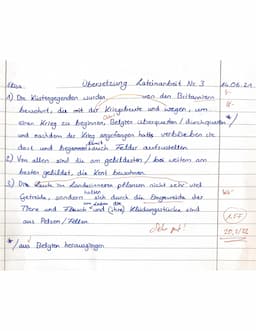 Übersetzung Lateinarbeit Nr. 3 14.06.21
1) Die Küstengegenden wurden von den Britanniern
bewohnt, die mit der Kriegsbeute und wegen, um
einen Krieg zu beginnen, Belgien überquerten / durchquerten */
und nachdem der Krieg angefangen hatte verblieben sie
dort und begannen auch Felder aufzustellen
damit
2) Von allen sind die am gebildetsten / bei weitem am
besten gebildet, die Kent bewohnen
3) Die Leute im Landesinneren pflanzen nicht sehr viel
Getreide, sondern sich durch die
halten
am Leben
Tiere und Fleisch und (ihre) Kleidungsstücke sind
aus Pelzen / Fellen
Sehr gut!
20,5/22
*/ aus Belgien herausgingen